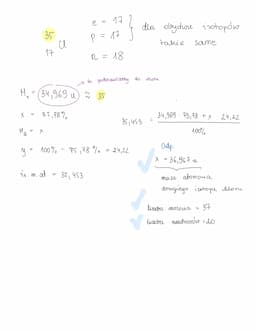 35
17
Cl
e = 17
p = 17
n = 18
dla obydwu izotopów
takie same
to podstawiamy do wzoru
M₁ = 34,969 u ≈ 35
x = 75,78%
M₂ = x
y = 100% - 75,78% = 24,22
śr. m. at = 35,453
35,453 = 34,969 · 75,78 + x · 24,22
100%
Odp.
x = 36,967 u
masa atomowa
drugiego izotopu chloru
liczba masowa = 37
liczba neutronów = 20